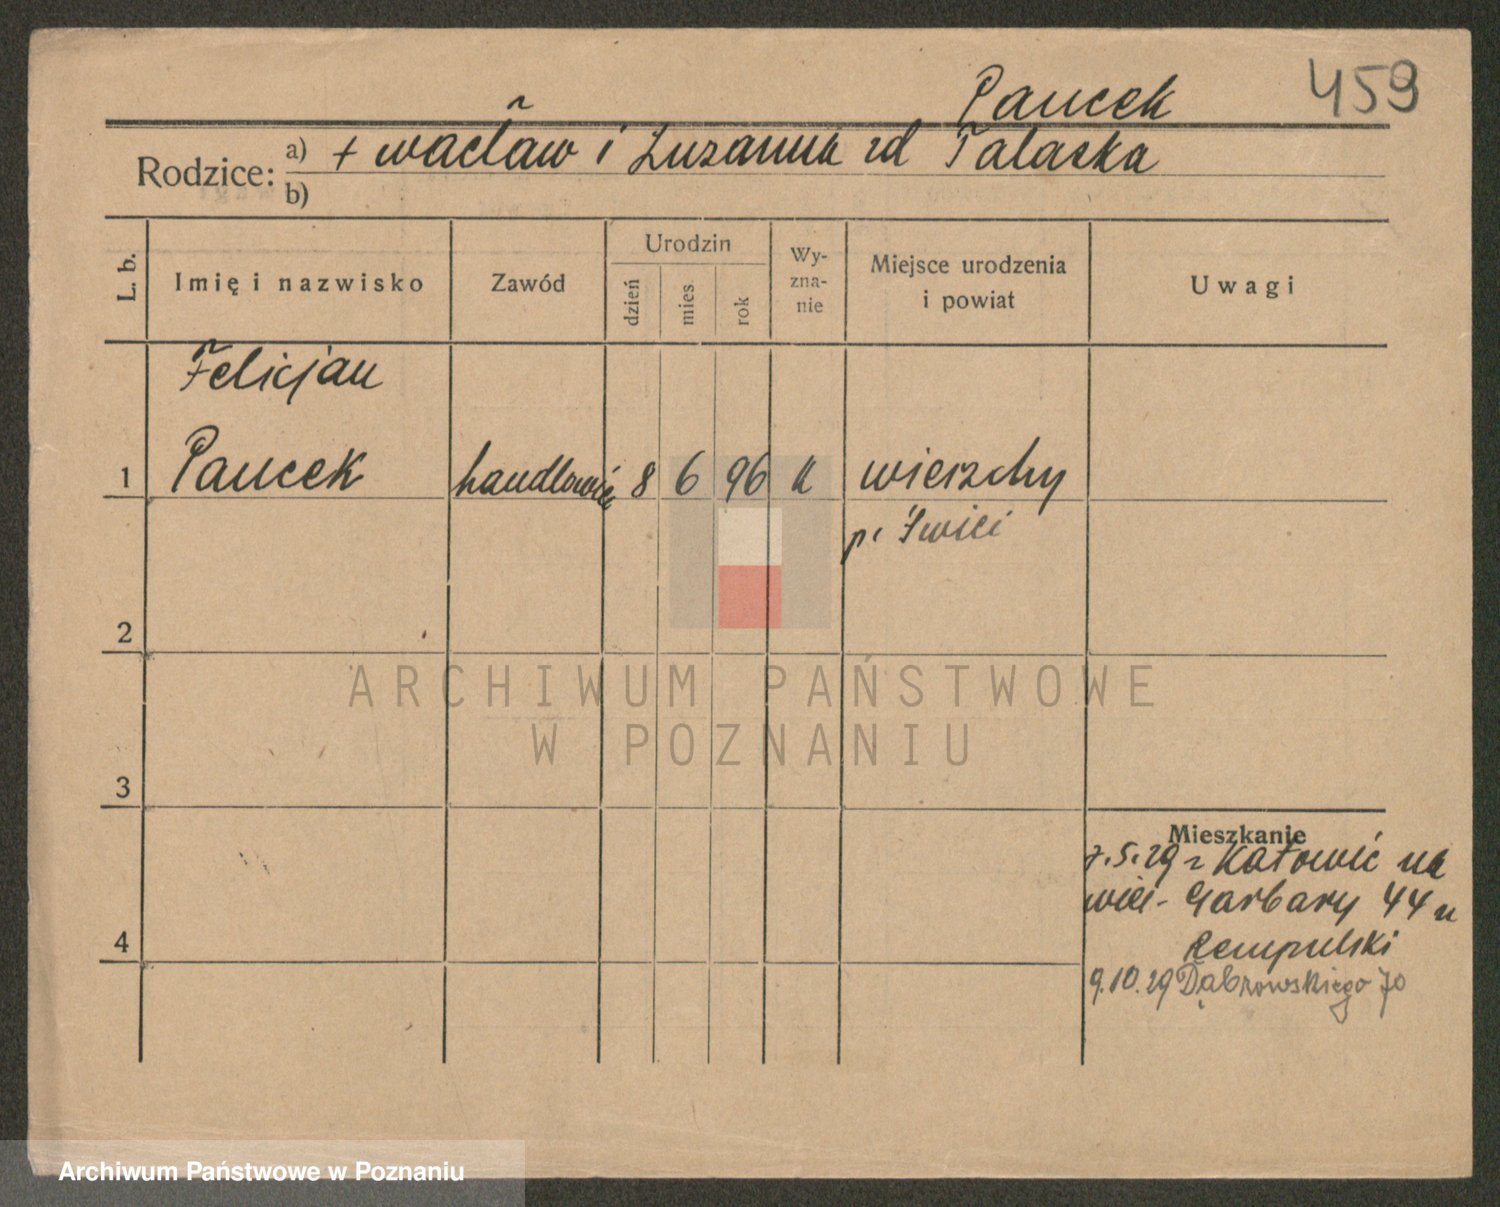 459
Paucek
Rodzice: a) + wacław i Zuzanna zd Talaska
b)
L. b.
Imię i nazwisko
Zawód
Urodzin
dzień
mies
rok
Wy-
zna-
nie
Miejsce urodzenia
i powiat
Uwagi
Felicjan
1 Paucek handlowiec 8 6 96 k wierzchy
p. Świeci
2
3
4
ARCHIWUM PAŃSTWOWE
W POZNANIU
Mieszkanie
7.5.29 z Katowic na
Garbary 44 u
9.10.29 Dąbrowskiego 70
Archiwum Państwowe w Poznaniu